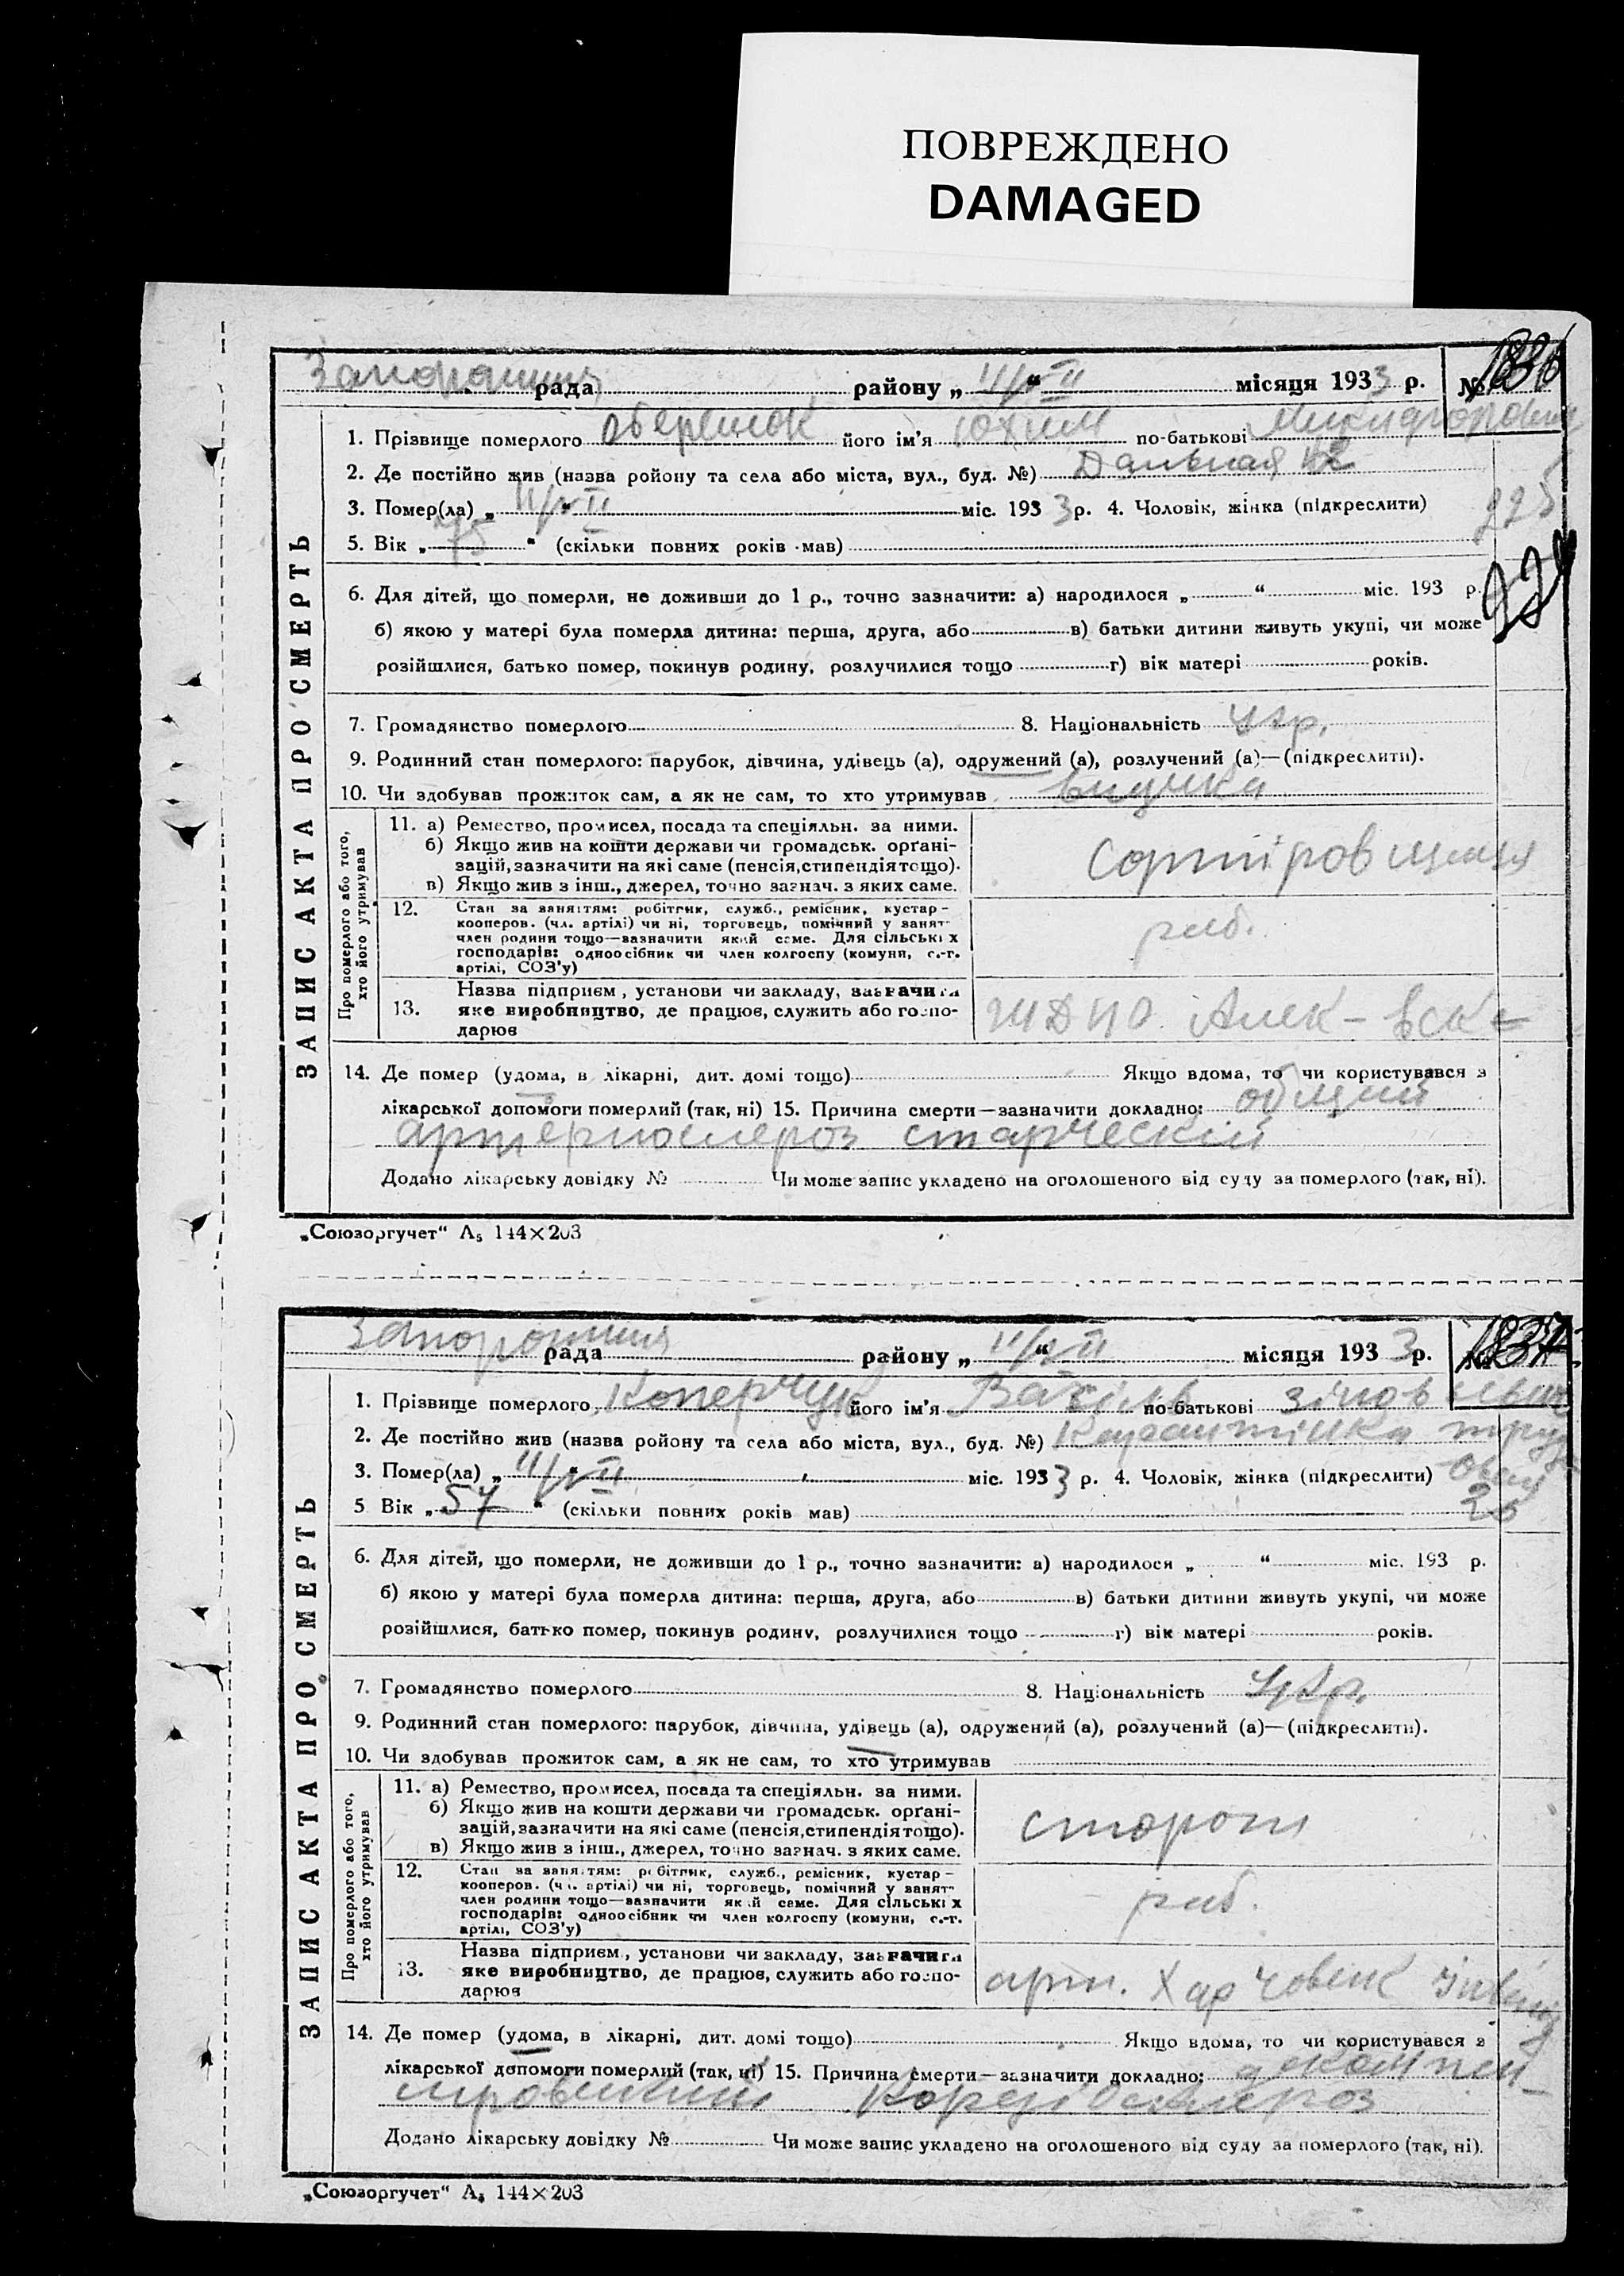 ПОВРЕЖДЕНО
DAMAGED
рада району „ 11/II “ місяця 1933 р. № 1836
1. Прізвище померлого його ім’я Юхим по-батькові
2. Де постійно жив (назва ройону та села або міста, вул., буд. №) Дальная 42
3. Помер(ла) „ 11/II “ міс. 1933 р. 4. Чоловік, жінка (підкреслити)
225
5. Вік „ 75 “ (скільки повних років мав)
224
6. Для дітей, що померли, не доживши до 1 р., точно зазначити: а) народилося „ “ міс. 193 р.
б) якою у матері була померла дитина: перша, друга, або в) батьки дитини живуть укупі, чи може
розійшлися, батько помер, покинув родину, розлучилися тощо г) вік матері років.
7. Громадянство померлого 8. Національність укр.
9. Родинний стан померлого: парубок, дівчина, удівець (а), одружений (а), розлучений (а)—(підкреслити).
10. Чи здобував прожиток сам, а як не сам, то хто утримував внучка
ЗАПИС АКТА ПРО СМЕРТЬ
Про померлого або того, хто його утримував
11. а) Ремество, промисел, посада та спеціяльн. за ними.
б) Якщо жив на кошти держави чи громадськ. орґані-
зацій, зазначити на які саме (пенсія, стипендія тощо).
в) Якщо жив з інш., джерел, точно зазнач. з яких саме.
Сортіровщица
12. Стан за заняттям: робітник, служб., ремісник, кустар-
кооперов. (чл. артілі) чи ні, торговець, помічний у занят-
член родини тощо—зазначити який саме. Для сільських
господарів: одноосібник чи член колгоспу (комуни, с.-г.
артілі, СОЗ’у)
раб.
Назва підприєм., установи чи закладу, зазначити
13. яке виробництво, де працює, служить або госпо-
дарює
14. Де помер (удома, в лікарні, дит. домі тощо) Якщо вдома, то чи користувався з
лікарської допомоги померлий (так, ні) 15. Причина смерти—зазначити докладно: общий
артериосклероз старческій
Додано лікарську довідку № Чи може запис укладено на оголошеного від суду за померлого (так, ні).
„Союзоргучет“ А₅ 144×203
рада району „ 11/II “ місяця 1933 р. № 1837
1. Прізвище померлого Коперчук його ім’я по-батькові
2. Де постійно жив (назва ройону та села або міста, вул., буд. №)
3. Помер(ла) „ 11/II “ міс. 1933 р. 4. Чоловік, жінка (підкреслити)
5 Вік „ 57 “ (скільки повних років мав)
6. Для дітей, що померли, не доживши до 1 р., точно зазначити: а) народилося „ “ міс. 193 р.
б) якою у матері була померла дитина: перша, друга, або в) батьки дитини живуть укупі, чи може
розійшлися, батько помер, покинув родину, розлучилися тощо г) вік матері років.
7. Громадянство померлого 8. Національність Укр.
9. Родинний стан померлого: парубок, дівчина, удівець (а), одружений (а), розлучений (а)—(підкреслити).
10. Чи здобував прожиток сам, а як не сам, то хто утримував
ЗАПИС АКТА ПРО СМЕРТЬ
Про померлого або того, хто його утримував
11. а) Ремество, промисел, посада та спеціяльн. за ними.
б) Якщо жив на кошти держави чи громадськ. орґані-
зацій, зазначити на які саме (пенсія, стипендія тощо).
в) Якщо жив з інш., джерел, точно зазнач. з яких саме.
сторож
12. Стан за заняттям: робітник, служб., ремісник, кустар-
кооперов. (чл. артілі) чи ні, торговець, помічний у занят-
член родини тощо—зазначити який саме. Для сільських
господарів: одноосібник чи член колгоспу (комуни, с.-г.
артілі, СОЗ’у)
раб.
Назва підприєм., установи чи закладу, зазначити
13. яке виробництво, де працює, служить або госпо-
дарює
арт.
14. Де помер (удома, в лікарні, дит. домі тощо) Якщо вдома, то чи користувався з
лікарської допомоги померлий (так, ні) 15. Причина смерти—зазначити докладно:
Додано лікарську довідку № Чи може запис укладено на оголошеного від суду за померлого (так, ні).
„Союзоргучет“ А₅ 144×203